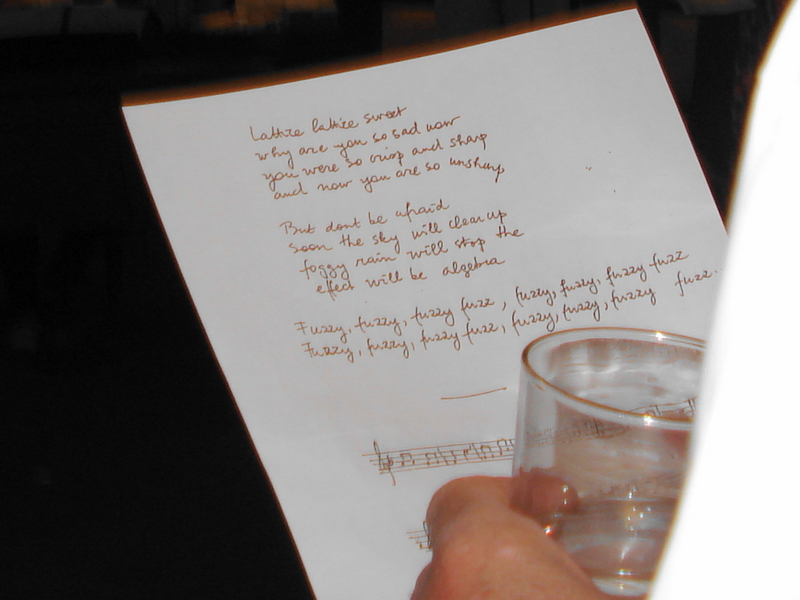 Lattice lattice sweet
why are you so sad now
you were so crisp and sharp
and now you are so unsharp
But dont be afraid
soon the sky will clear up
foggy rain will stop the
effect will be algebra
Fuzzy, fuzzy, fuzzy fuzz, fuzzy, fuzzy, fuzzy fuzz
Fuzzy, fuzzy, fuzzy fuzz, fuzzy, fuzzy, fuzzy fuzz.